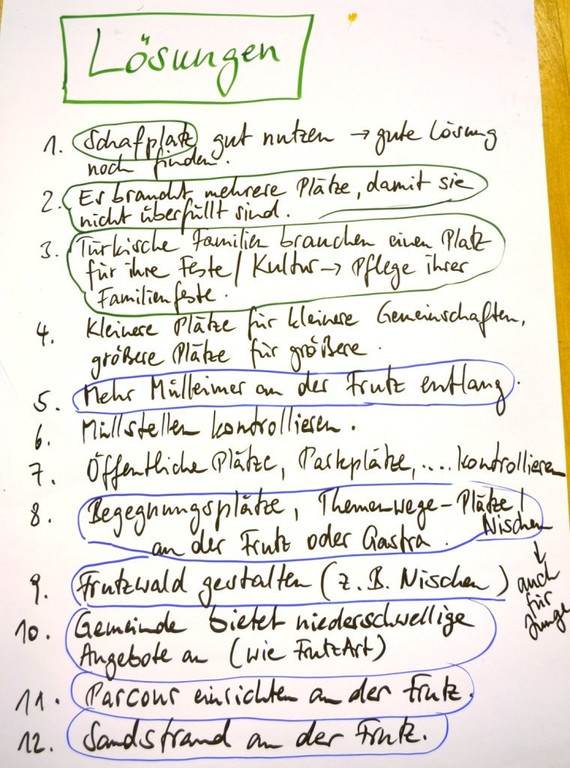 Lösungen
1. Schafplatz gut nutzen → gute Lösung
noch finden.
2. Es braucht mehrere Plätze, damit sie
nicht überfüllt sind.
3. Türkische Familien brauchen einen Platz
für ihre Feste/Kultur → Pflege ihrer
Familienfeste.
4. Kleinere Plätze für kleinere Gemeinschaften,
größere Plätze für größere.
5. Mehr Mülleimer an der Frutz entlang.
6. Müllstellen kontrollieren.
7. Öffentliche Plätze, Parkplätze, .... kontrollieren
8. Begegnungsplätze, Themenwege-Plätze/
Nischen
an der Frutz oder Gastra.
↓
auch
für
Junge
9. Frutzwald gestalten (z.B. Nischen)
10. Gemeinde bietet niederschwellige
Angebote an (wie FrutzArt)
11. Parcour einrichten an der Frutz.
12. Sandstrand an der Frutz.